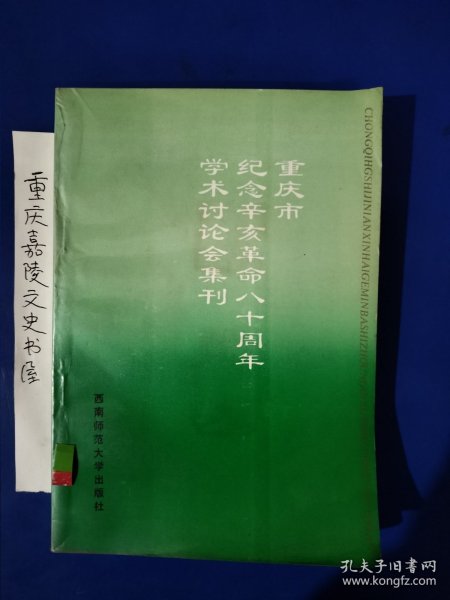 重庆市
纪念辛亥革命八十周年
学术讨论会集刊
西南师范大学出版社
CHONGQIHGSHIJINIANXINHAIGEMINBASHIZHOU
重庆嘉陵文史书屋
孔夫子旧书网
www.kongfz.com